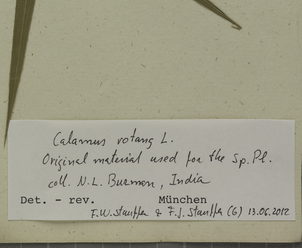 Calamus rotang L.
Original material used for the Sp. Pl.
coll. N.L. Burman, India
Det. - rev. München
F.W. Stauffer & F.J. Stauffer (G) 13.06.2012